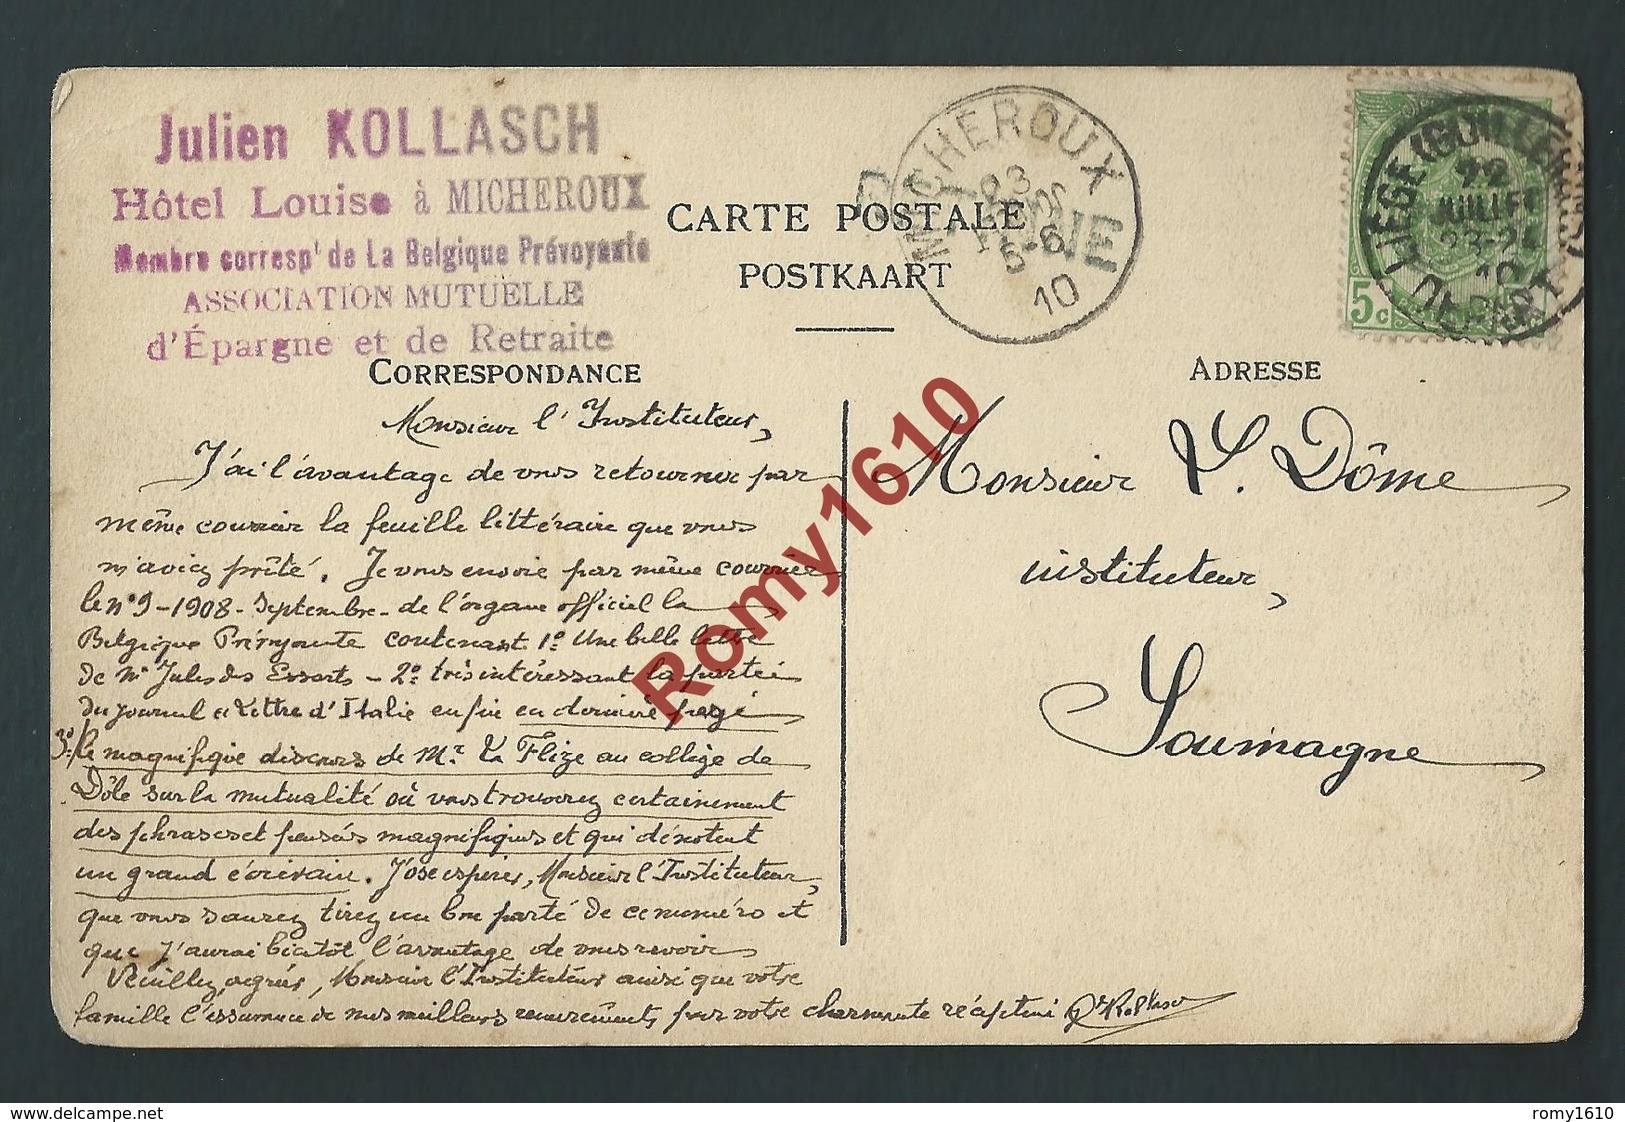 Julien KOLLASCH
Hôtel Louise à MICHEROUX
Membre corresp' de La Belgique Prévoyante
ASSOCIATION MUTUELLE
d'Épargne et de Retraite
MICHEROUX
23
5-6
10
CARTE POSTALE
POSTKAART
LIEGE (GUILLEMINS)
DÉPART
22
JUILLET
23-24
10
5c
CORRESPONDANCE
ADRESSE
Monsieur l'Instituteur,
J'ai l'avantage de vous retourner par
même courrier la feuille littéraire que vous
m'aviez prêté. Je vous envoie par même courrier
le n° 9 - 1908 - Septembre - de l'organe officiel la
Belgique Prévoyante contenant 1° Une belle lettre
de Mr Jules des Essarts - 2° très intéressant la partie
du journal et Lettre d'Italie enfin en dernière page
3° le magnifique discours de Mr La Flize au collège de
Dôle sur la mutualité où vous trouverez certainement
des phrases et pensées magnifiques et qui dénotent
un grand écrivain. J'ose espérer, Monsieur l'Instituteur,
que vous saurez tirez un bon parté de ce numéro et
que j'aurai bientôt l'avantage de vous revoir
Veuillez agréer, Monsieur l'Instituteur ainsi que votre
famille l'assurance de mes meilleurs remerciements, par votre charmante
Monsieur S. Dôme
instituteur,
Soumagne
Romy1610
www.delcampe.net
romy1610